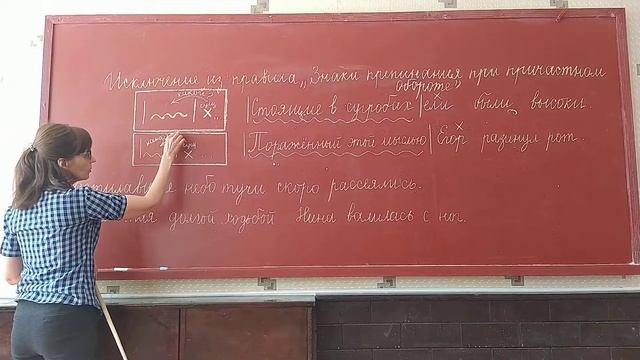 Исключение из правила „Знаки препинания при причастном
обороте"
какой?
сущ.
Стоящие в сугробах ели были высоки.
Поражённый этой мыслью Егор разинул рот.
небо тучи скоро рассеялись.
долгой ходьбой Нина валилась с ног.